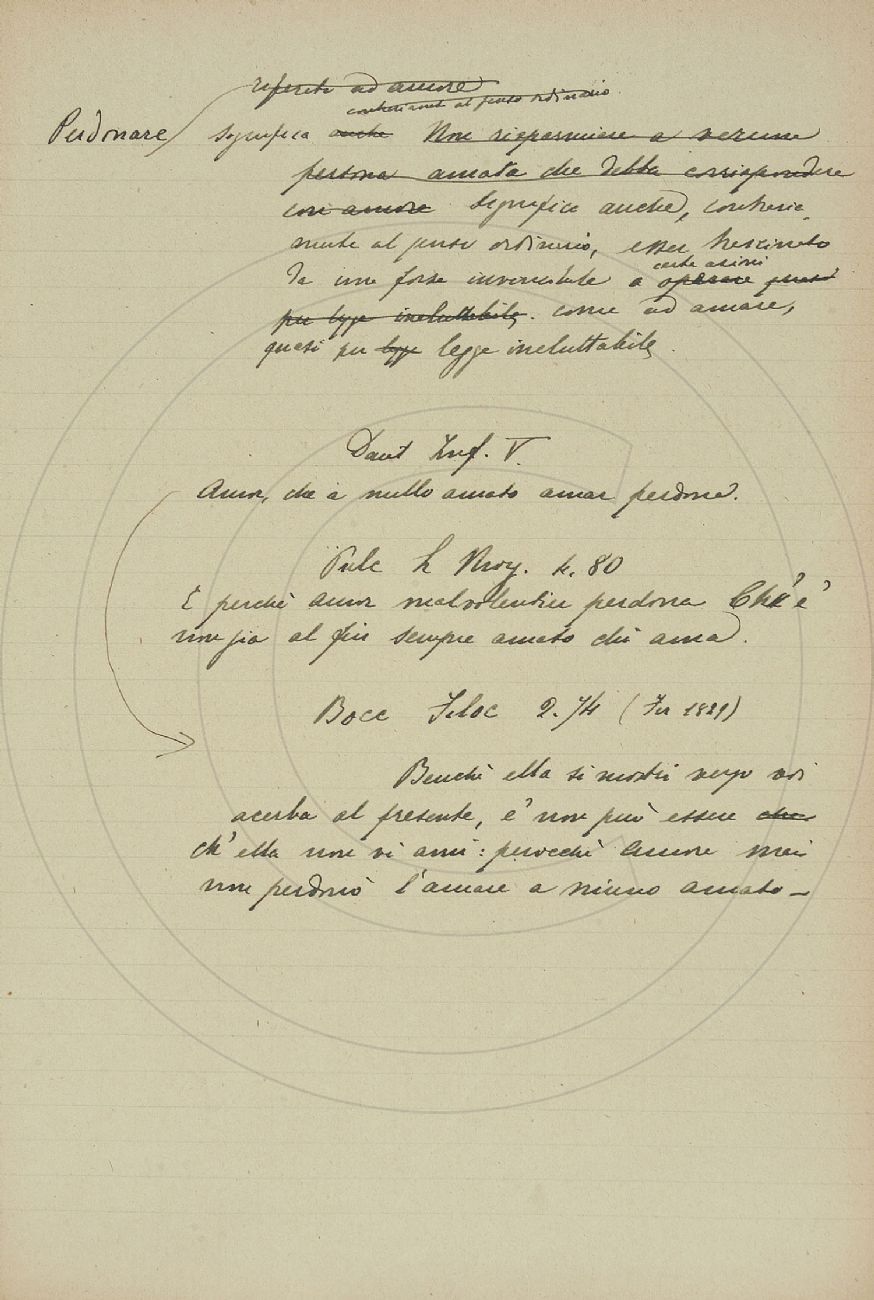 riferito ad amore
contrariamente al senso ordinario
Perdonare significa anche Non risparmiare a veruna
persona amata che debba corrispondere
con amore Significa anche, contraria
mente al senso ordinario, esser trascinato
da una forza invincibile a operare quasi
certe azioni
per legge ineluttabile. come ad amare,
quasi per legge legge ineluttabile.
Dant Inf. V.
Amor, che a nullo amato amar perdona.
Pulc L Morg. 4. 80
E perchè amor malvolentier perdona Ch' e'
non sia al fin sempre amato chi ama.
Bocc Filoc 2. 74 (Fir 1829)
Benchè ella si mostri verso voi
acerba al presente, e' non può essere che
ch' ella non vi ami: perocchè Amore mai
non perdonò l'amare a niuno amato—